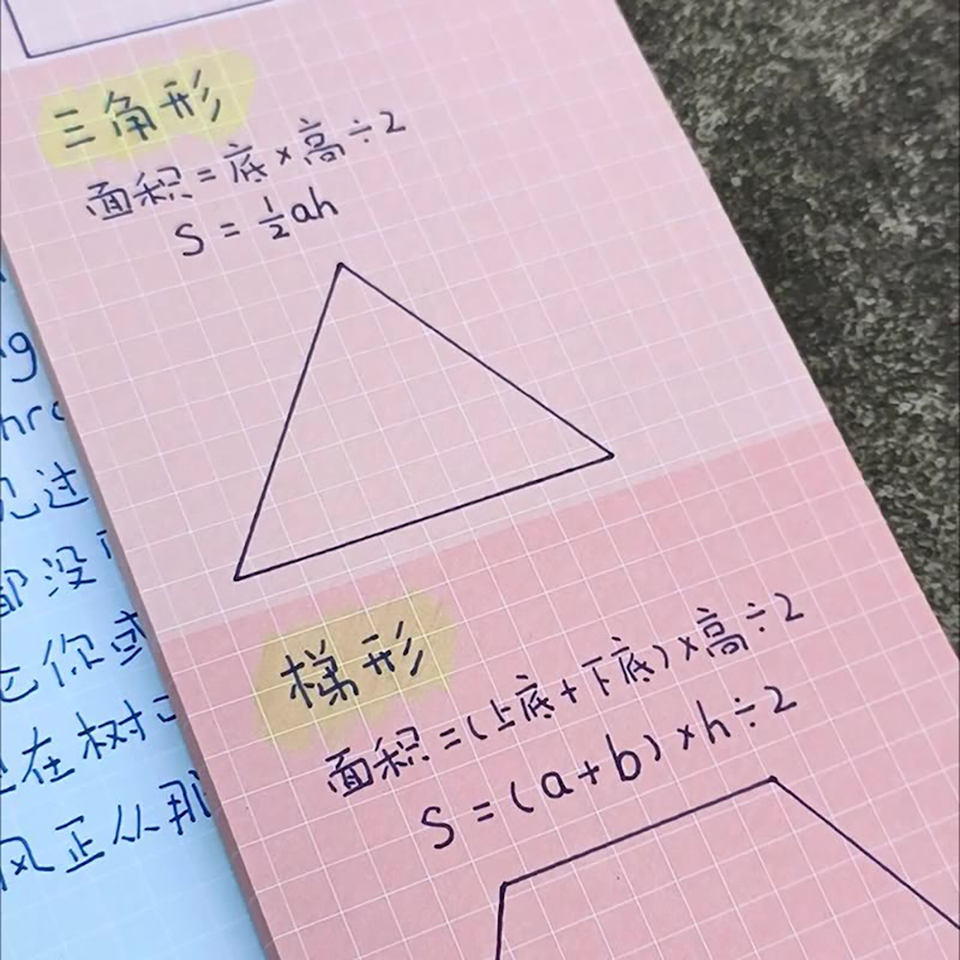 三角形
面积=底×高÷2
S=½ah
梯形
面积=(上底+下底)×高÷2
S=(a+b)×h÷2
g
见过
都没
你或
在树
风正从那